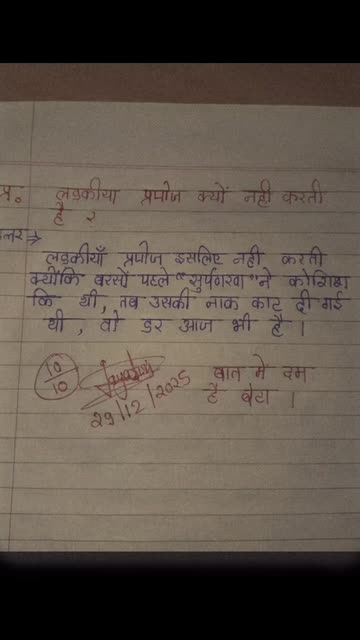 प्र. लडकीया प्रपोज क्यों नही करती
है ?
त्तर ⇒
लडकीयाँ प्रपोज इसलिए नही करती
क्योंकि बरसों पहले "सुर्पणखा" ने कोशिश
कि थी, तब उसकी नाक काट दी गई
थी, वो डर आज भी है ।
10/10
29/12/2025
बात में दम
है बेटा ।